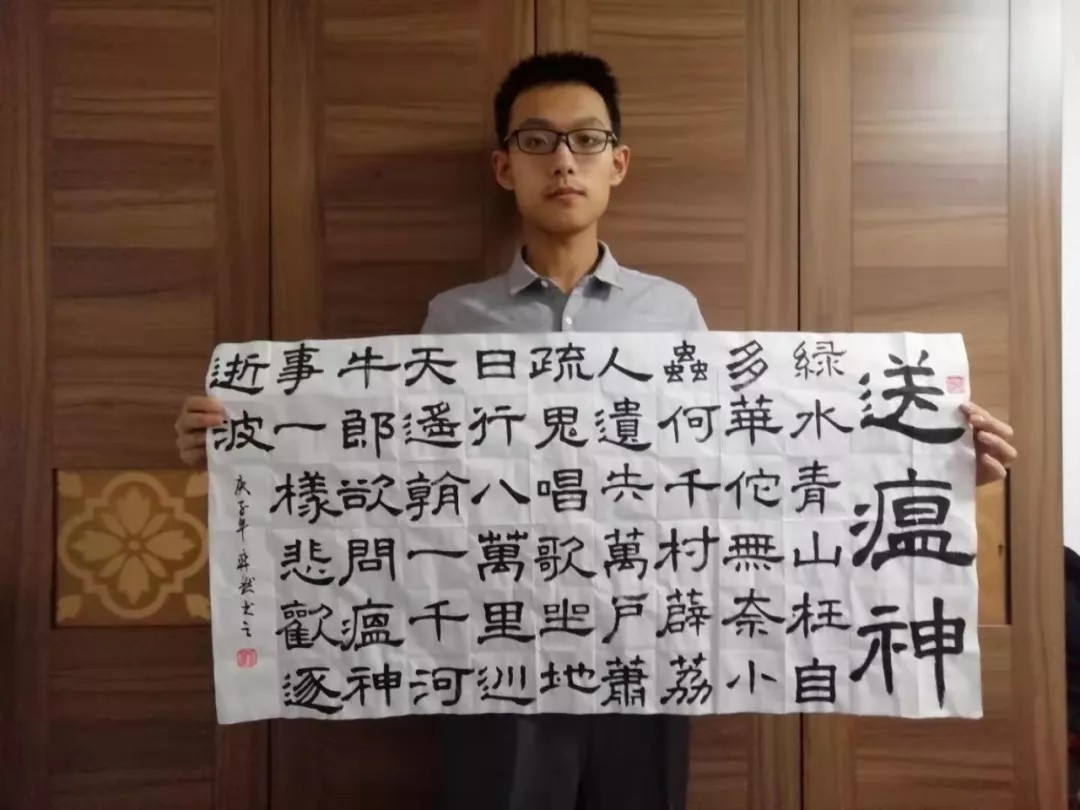 送瘟神
緑水青山枉自
多華佗無奈小
蟲何千村薜荔
人遺矢萬戶蕭
疏鬼唱歌坐地
日行八萬里巡
天遙看一千河
牛郎欲問瘟神
事一樣悲歡逐
逝波
庚子年书之